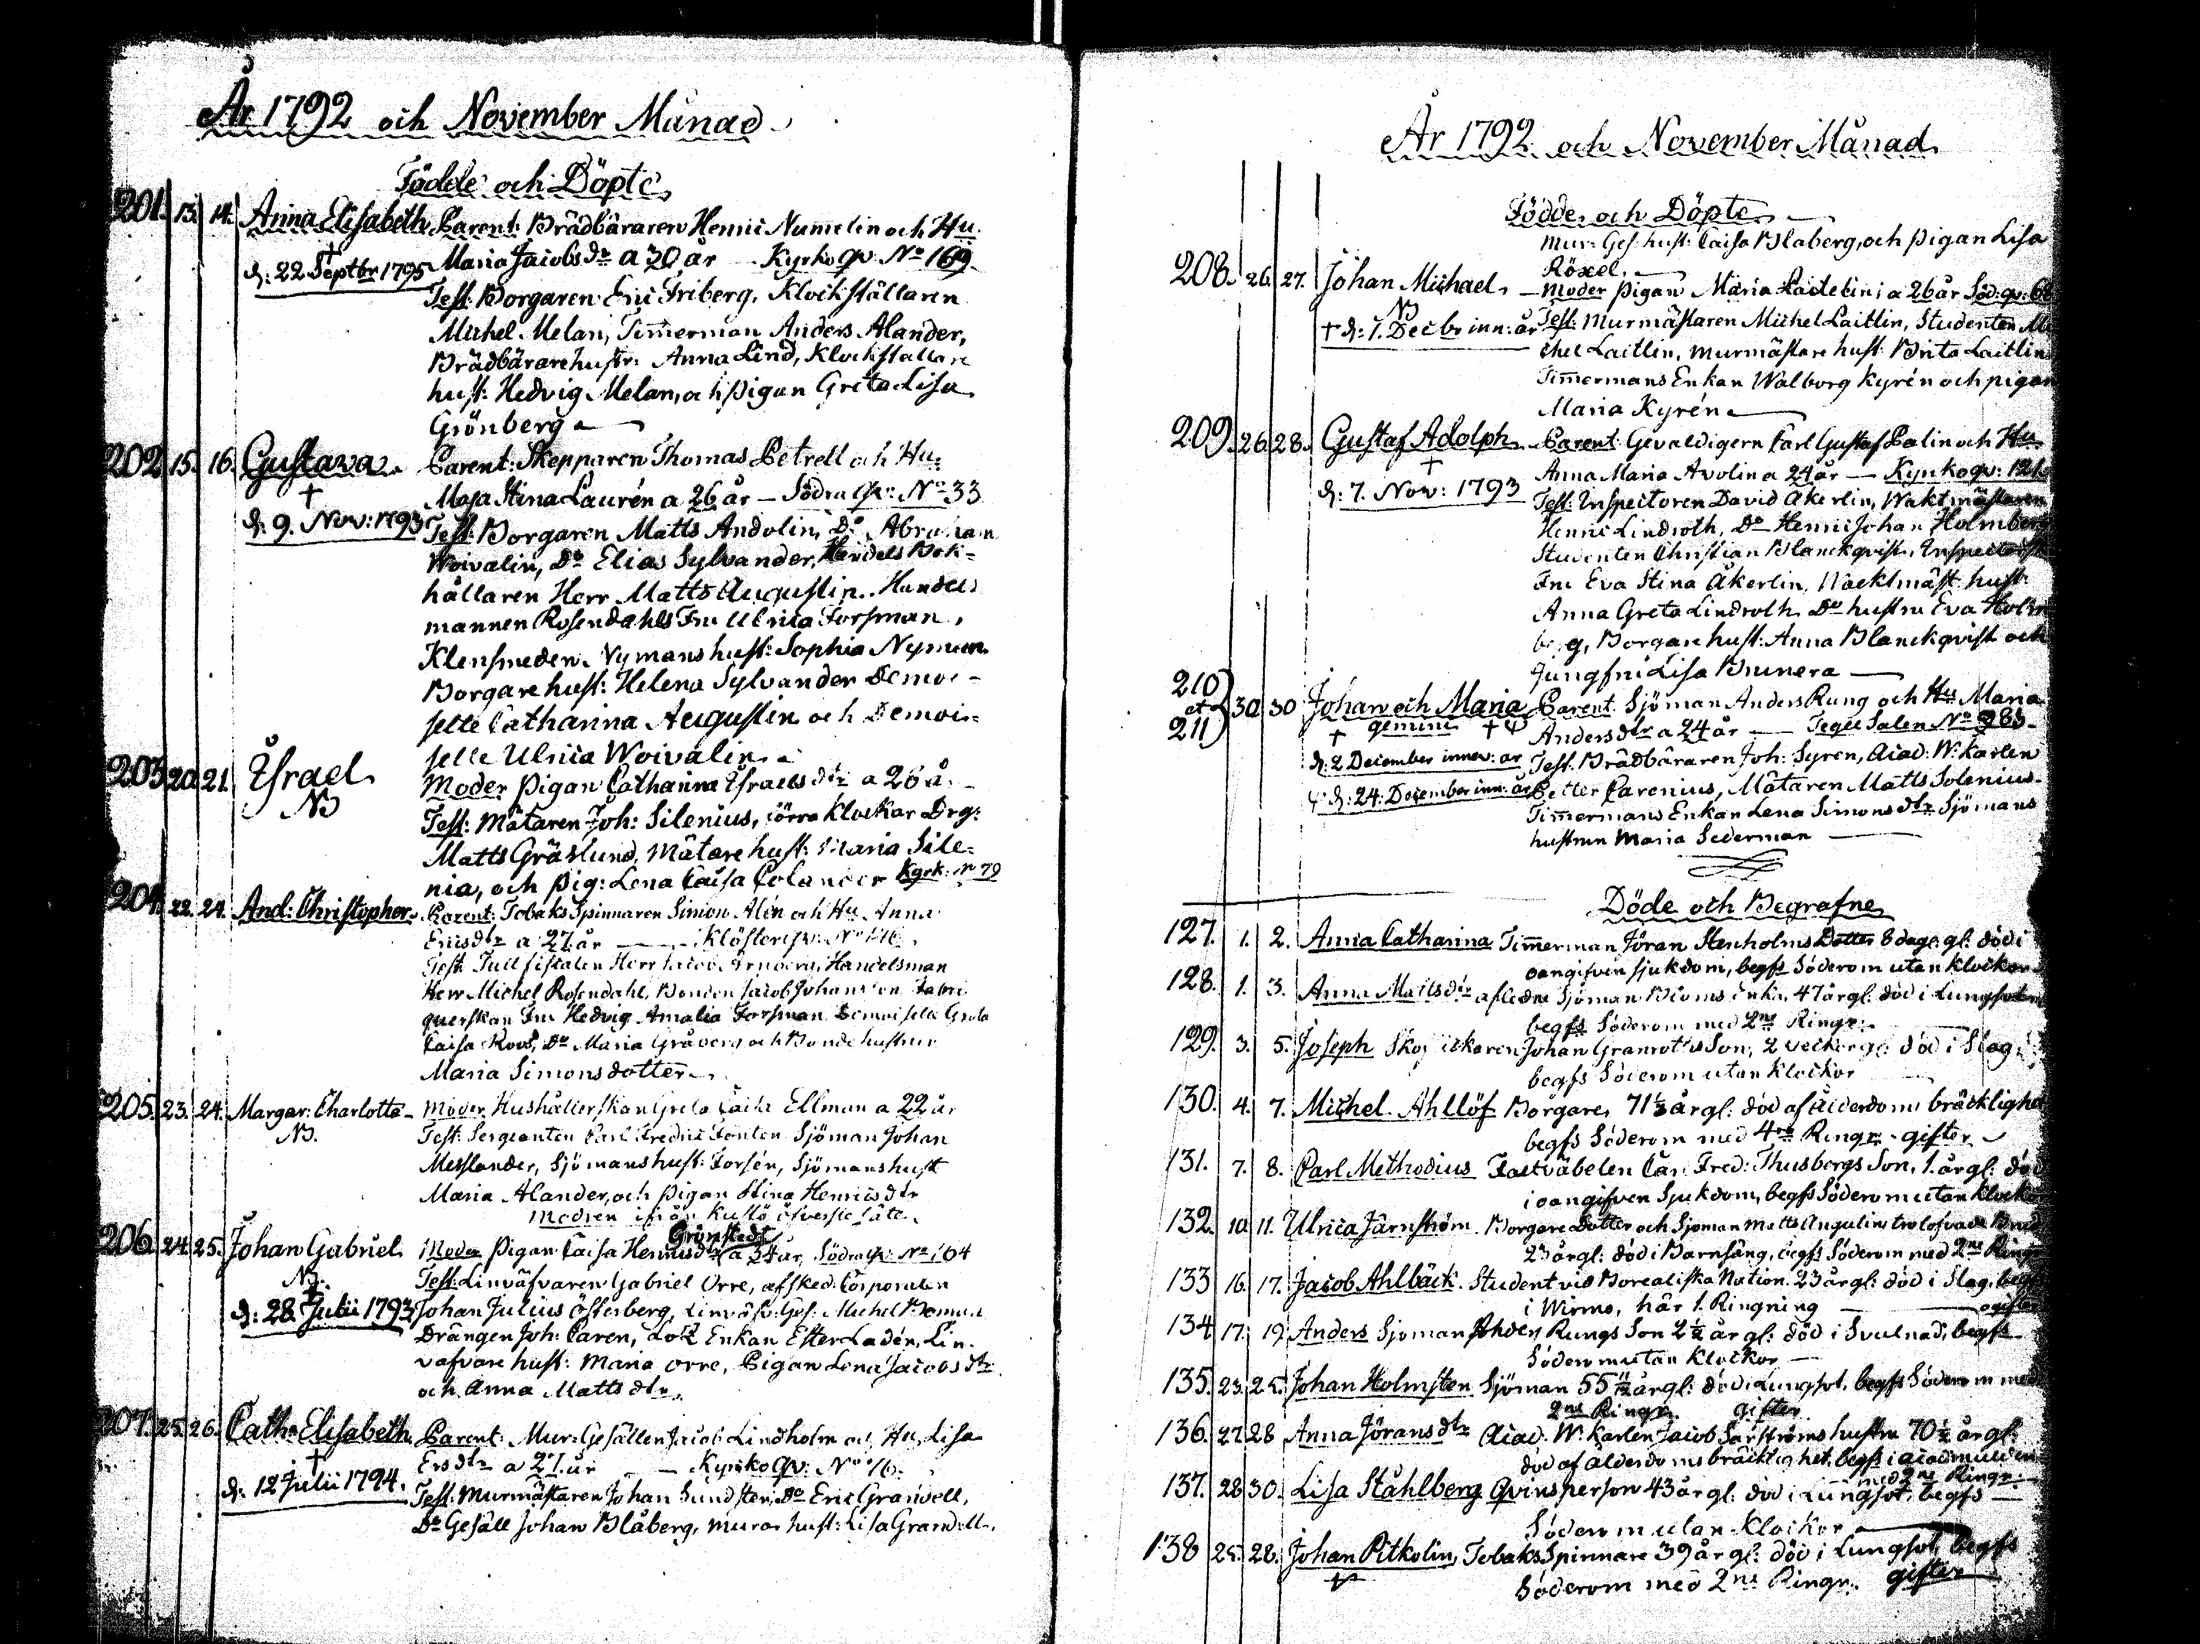 År 1792 och November Månad
Födde och Döpte
201. 13. 14. Anna Elisabeth Parent: Brädbäraren Henric Numelin och Hu.
Maria Jacobs dr a 30 år Kyrko qv. No 169.
† d: 22 Septbr 1795
Test: Borgaren Eric Friberg, Klockställaren
Michel Melan, Tim̄erman Anders Alander,
Brädbärarehustr: Anna Lind, Klockställare
hust: Hedvig Melan, och Pigan Greta Lisa
Grönberg
202. 15. 16. Gustava Parent: Skepparen Thomas Petrell och Hu:
Maja Stina Laurén a 26 år – Södra qv: No 33
† d: 9. Nov: 1793
Test: Borgaren Matts Andolin, Do Abraham
Woivalin, Do Elias Sylvander, Handels Bok-
hållaren Herr Matts Augustin. Handels
mannen Rosendahls Fru Ulrica Forsman,
Klensmeden Nymans hust: Sophia Nyman
Borgare hust: Helena Sylvander Demoi-
selle Catharina Augustin och Demoi-
selle Ulrica Woivalin.
203. 20. 21. Israel Moder Pigan Catharina Israels dtr a 26 å.
NB
Test: Mätaren Joh: Silenius, Klockar Drg:
Matts Gräslund, Mätare hust: Maria Sile-
nia, och Pig: Lena Caisa Polander Kyrk: No 79
204. 22. 24. And: Christopher Parent: Tobaks Spinnaren Simon Alén och Hu Anna
Ericsdtr a 27 år – Kloster qv: No
Test: Tull fiskalen Herr Jacob Handelsman
Herr Michel Rosendahl, Bonden Jacob Johansson
querskan Fru Hedvig Amalia Forsman Demoiselle Greta
Caisa Roos, Do Maria Gråberg och Bonde hustrur
Maria Simonsdotter
205. 23. 24. Margar: Charlotta Moder Hushållerskan Greta Caisa Ellman a 22 år
NB.
Test: Sergeanten Carl Fredric Sjöman Johan
Messlander, Sjömans hust: Forsén, Sjömans hust
Maria Alander, och Pigan Stina Henrics dtr
Modren ifrån Kustö
206. 24. 25. Johan Gabriel Moder Pigan Caisa Henricsdtr Grönstedt a 34 år, Södra qv: No 164
NB.
† d: 28 Julii 1793
Test: Linväfvaren Gabriel Orre, afsked: Corporalen
Johan Julius Österberg, Linväfv: Ges. Michel
Drängen Joh: Caren, Enkan Ester Ladén, Lin-
väfvare hust: Maria Orre, Pigan Lena Jacobs dtr
och Anna Matts dtr
207. 25. 26. Cath: Elisabeth Parent: Mur: Gesällen Jacob Lindholm och Hu, Lisa
Ers dtr a 27 år – Kyrko qv: No 76.
† d: 12 Julii 1794.
Test: Murmästaren Johan Sundsten, Do Eric Granvell,
Do Gesäll Johan Blåberg, murar hust: Lisa Granvell.
År 1792 och November Månad
Födde och Döpte
Mur: Ges: hust: Caisa Blaberg, och Pigan Lisa
Röxel.
208. 26. 27. Johan Michael Moder Pigan Maria a 26 år Söd: qv:
NB
† d: 1. Decbr inn: år
Test: Murmästaren Michel Laitlin, Studenten Mi
chel Laitlin, Murmästare hust: Brita Laitlin
Tim̄ermans Enkan Walborg Kyrén och pigan
Maria Kyrén
209. 26 28. Gustaf Adolph Parent: Gevaldigern Carl Gustaf Palin och Hu.
Anna Maria Avolin a 24 år – Kyrko qv: 121.
† d: 7. Nov: 1793
Test: Inspectoren David Åkerlin, Waktmästaren
Henric Lindroth, Do Henric Johan Holmberg
Studenten Christian Blanckqvist, Inspectors
Fru Eva Stina Åkerlin, Wacktmäst: hust:
Anna Greta Lindroth Do hustru Eva Holm
berg, Borgare hust: Anna Blanckqvist och
Jungfru Lisa Brunera
210 et 211 30 30 Johan och Maria Parent Sjöman Anders Rung och Hu Maria
gemini
Anders dtr a 24 år – Tegel Salen No 285
d: 2 December innev: år
Test. Brädbäraren Joh: Syren, Acad: W: karlen
d: 24: December inn: år
Petter Carenius, Mätaren Matts Solenius
Tim̄ermans Enkan Lena Simons dtr Sjömans
hustrun Maria Sederman
Döde och Begrafne
127. 1. 2. Anna Catharina Tim̄erman Jöran Stenholms Dotter 8 dagr gl: död i
oangifven sjukdom, begfs Söderom utan klockor
128. 1. 3. Anna Matts dtr afledne Sjöman Bloms Enka, 47 år gl. död i Lungsoten
begfs Söderom med 2ne Ringr:
129. 3. 5. Joseph Johan Granroths Son, 2 veckor gl: död i Slag
begfs Söderom utan klockor
130. 4. 7. Michel Ahllöf Borgare, 71½ år gl: död af ålderdoms bräcklighet
begfs Söderom med 4ra Ringr – gifter
131. 7. 8. Carl Methodius Faltväbelen Carl Fred: Thusbergs Son, 1. år gl: död
i oangifven Sjukdom, begfs Söderom utan klockor
132. 10. 11. Ulrica Järnström Borgare Dotter och Sjoman Matts Angulins trolofvade Brud
23 år gl: död i Barnsäng, begfs Söderom med 2ne Ringr
133 16. 17. Jacob Ahlbäck. Student vid Borealiska Nation. 23 år gl: död i Slag, begfs
i Wirmo, här 1. Ringning ogifter
134 17. 19 Anders Sjöman Anders Rungs Son 2½ år gl: död i Svulnad, begfs
Söderom utan klockor
135. 23. 25. Johan Holmsten Sjöman 55 år gl: död i Lungsot, begfs Söderom med
2ne Ringr. gifter
136. 27. 28 Anna Jörans dtr Acad. W: karlen Jacob Sarströms hustru 70½ år gl:
dod af alderdoms bräcklighet, begfs i
med 2ne Ringr:
137. 28 30. Lisa Ståhlberg Qvinsperson 43 år gl: död i Lungsot, begfs
Söderom utan klockor
138 25. 28. Johan Pitkolin, Tobaks Spinnare 39 år gl: död i Lungsot, begfs
Söderom med 2ne Ringr. gifter